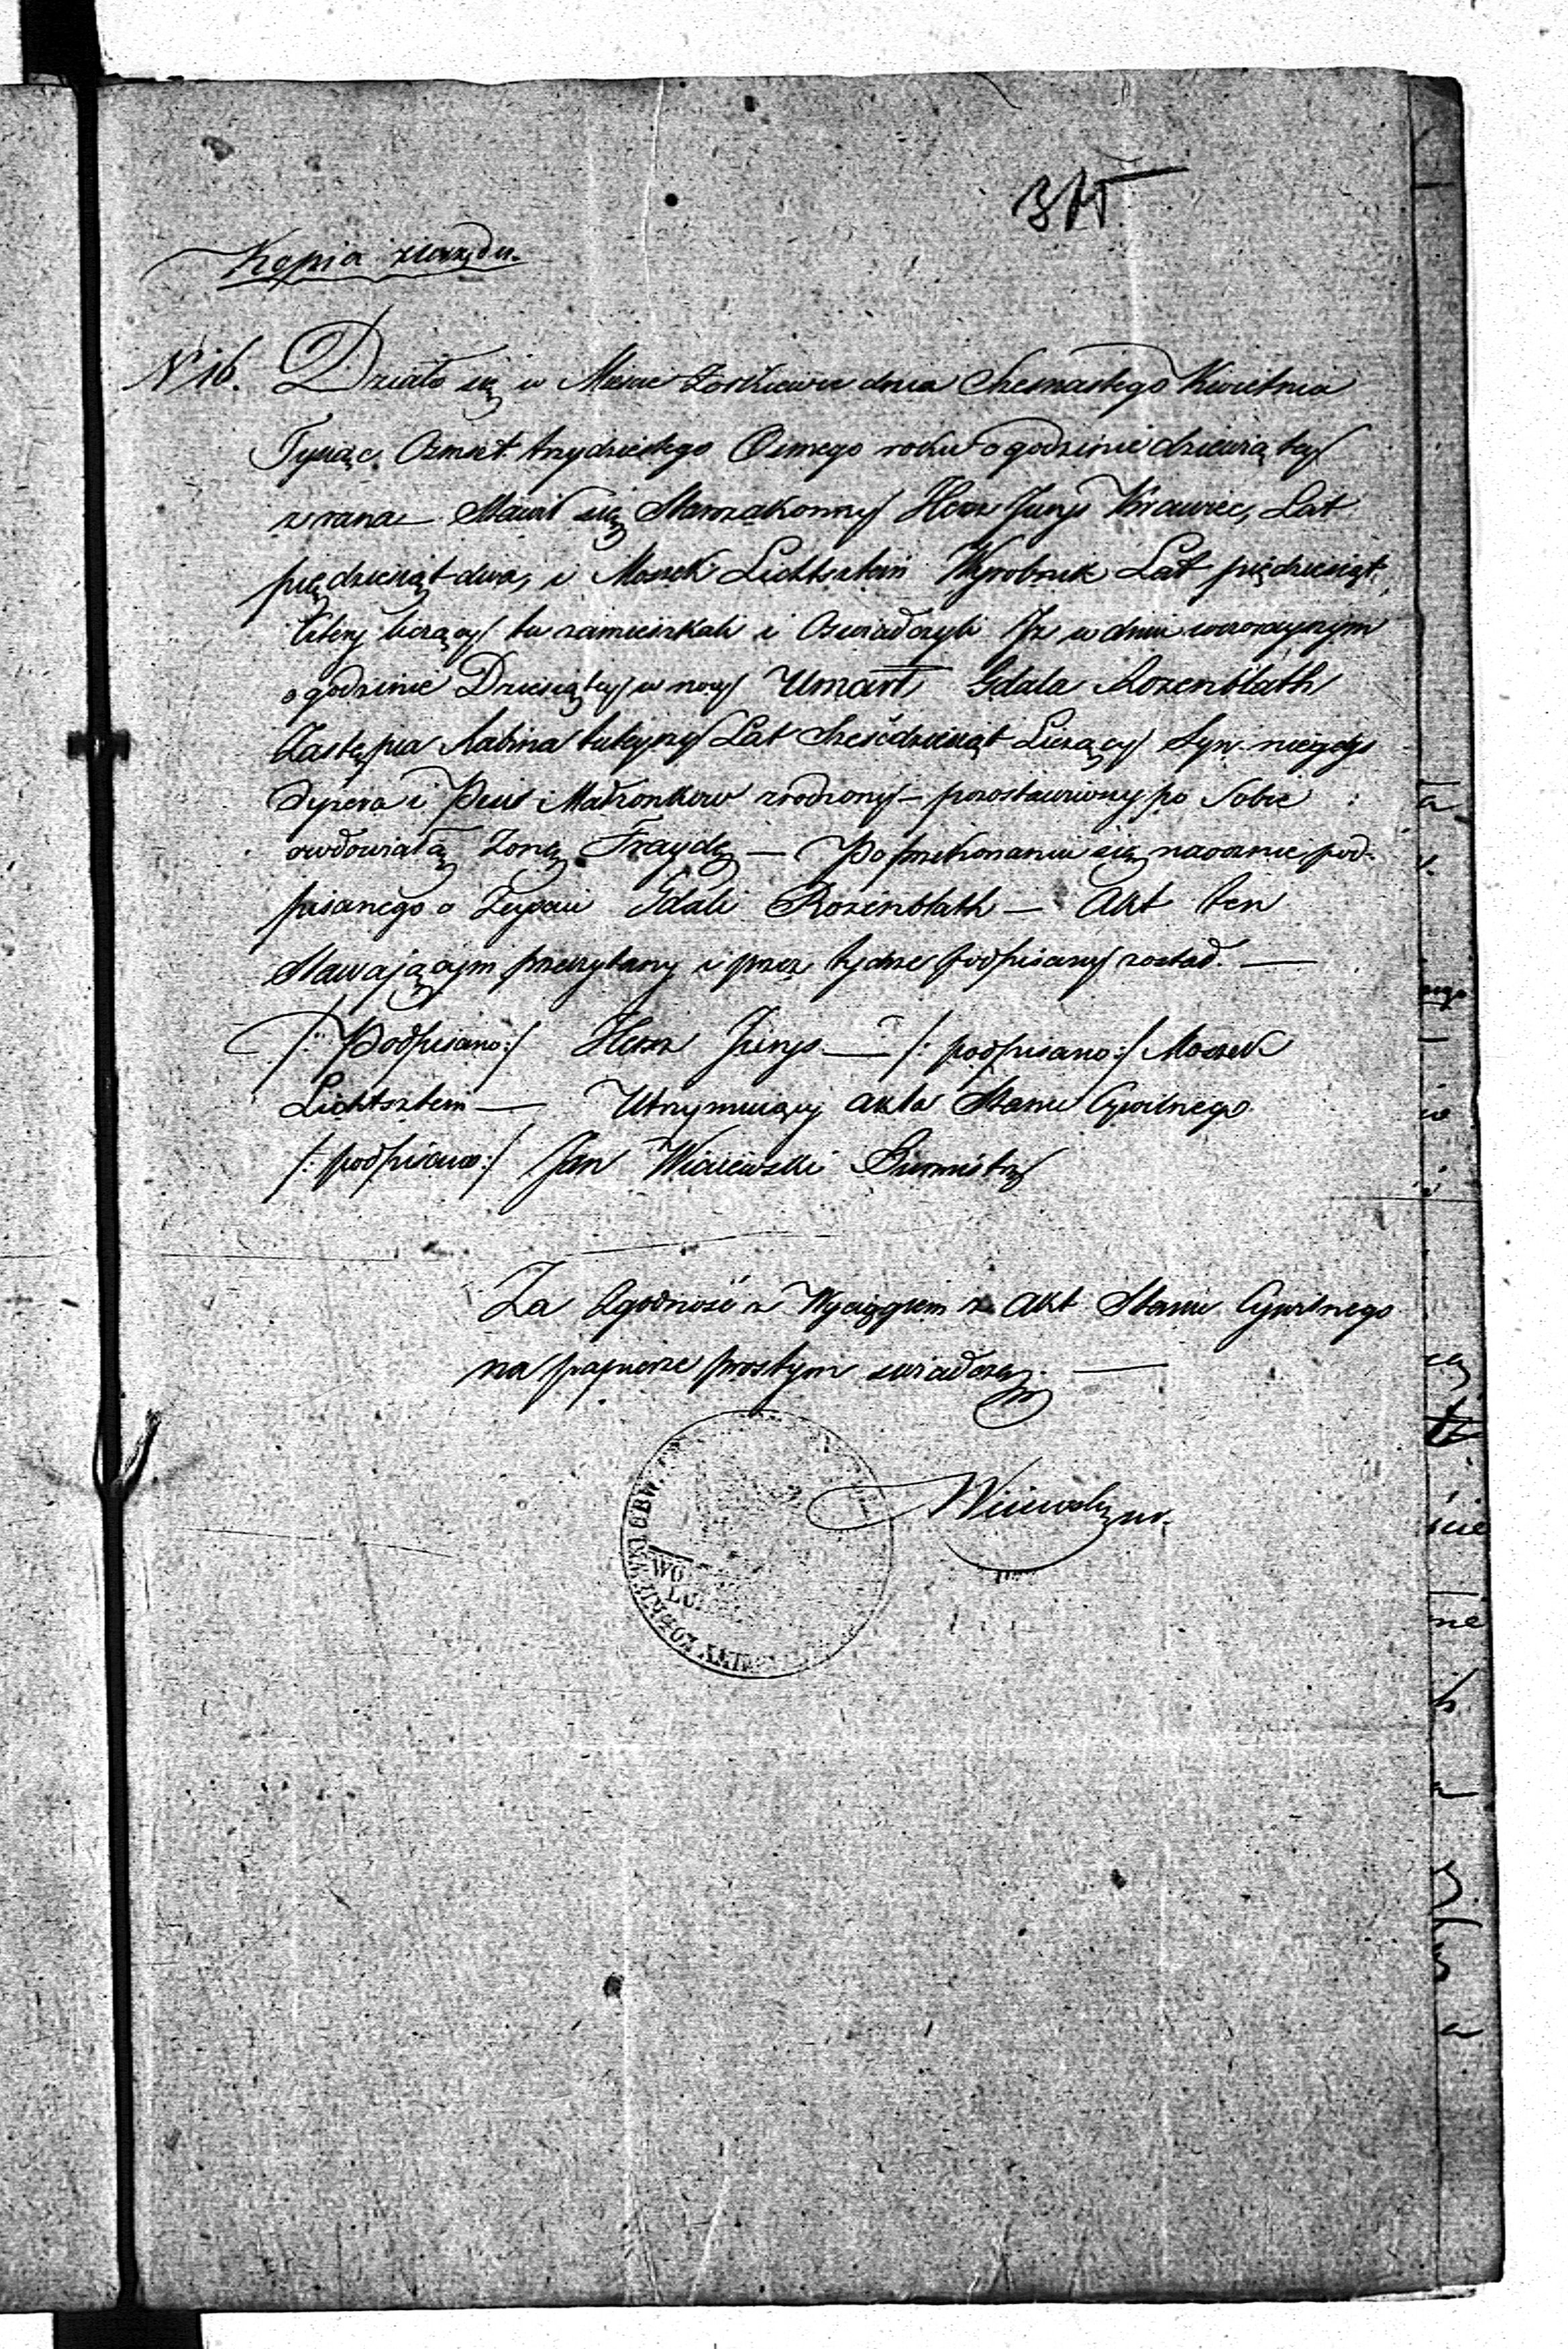 Kopia z Urzędu.
N 16. Działo się w Mieście Żorkiewce dnia Szesnastego Kwietnia
Tysiąc Osmset trzydziestego Osmego roku o godzinie dziewiątey
z rana Stawił się Starozakonny Herz Jungs Krawiec, Lat
pięćdziesiąt dwa, i Moszek Lichtsztein Wyrobnik Lat pięćdziesiąt
cztery liczący tu zamieszkali i Oswiadczyli Iż w dniu wczorayszym
o godzinie Dziesiątey w nocy Umarł Gdala Rozenblath
Zastępca Rabina tuteyszy Lat Sześćdziesiąt Liczący Syn niegdys
i Małżonków zrodzony – pozostawiwszy po Sobie
owdowiałą Żonę Fraydę — Po przekonaniu się naocznie pod-
pisanego o Zeyściu Gdali Rozenblath — Akt ten
Stawającym przeczytany i przez tychże podpisany został. —
/: Podpisano :/ Herz Jungs — /: podpisano :/ Moszek
Lichtsztein — Utrzymuiący akta Stanu Cywilnego
/: podpisano :/ Jan Burmistrz
Za Zgodność z Wyciągiem z Akt Stanu Cywilnego
na papierze prostym swiadczę. —
OBW.
WO